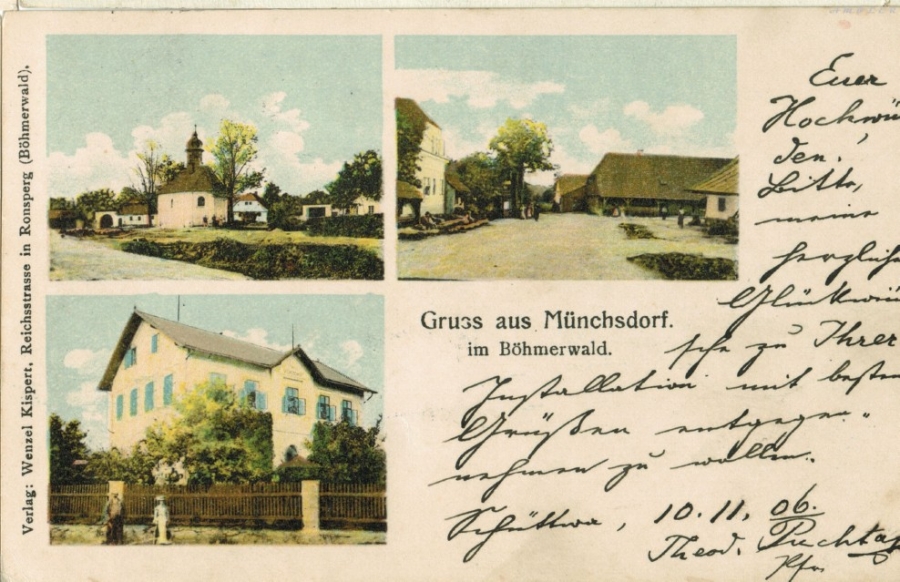 Verlag: Wenzel Kispert, Reichsstrasse in Ronsperg (Böhmerwald).
Gruss aus Münchsdorf.
im Böhmerwald.
Euer
Hochwür
den!
Bitte,
meine
herzliche
Glückwün
sche zu Ihrer
Installation mit besten
Grüßen entgegen-
nehmen zu wollen.
Schüttwa, 10.11.06.
Theod.
Pfr.